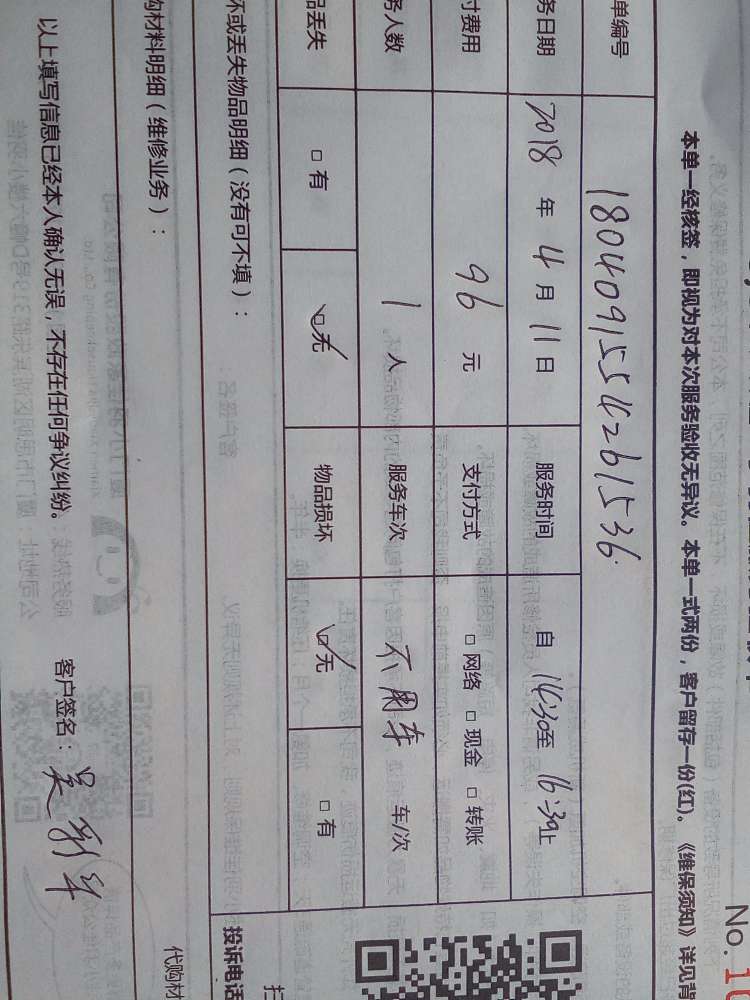 No. 1
本单一经核签，即视为对本次服务验收无异议。本单一式两份，客户留存一份(红)。《维保须知》详见背
单编号 1804091554261536
务日期 2018 年 4 月 11 日 服务时间 自 14:30至 16:30止
付费用 96 元 支付方式 □ 网络 □ 现金 □ 转账
务人数 1 人 服务车次 不用车 车/次
品丢失 □ 有 □ 无 物品损坏 □ 无 □ 有
坏或丢失物品明细（没有可不填）：
投诉电话
扫
购材料明细（维修业务）：
代购材
以上填写信息已经本人确认无误，不存在任何争议纠纷。 客户签名：